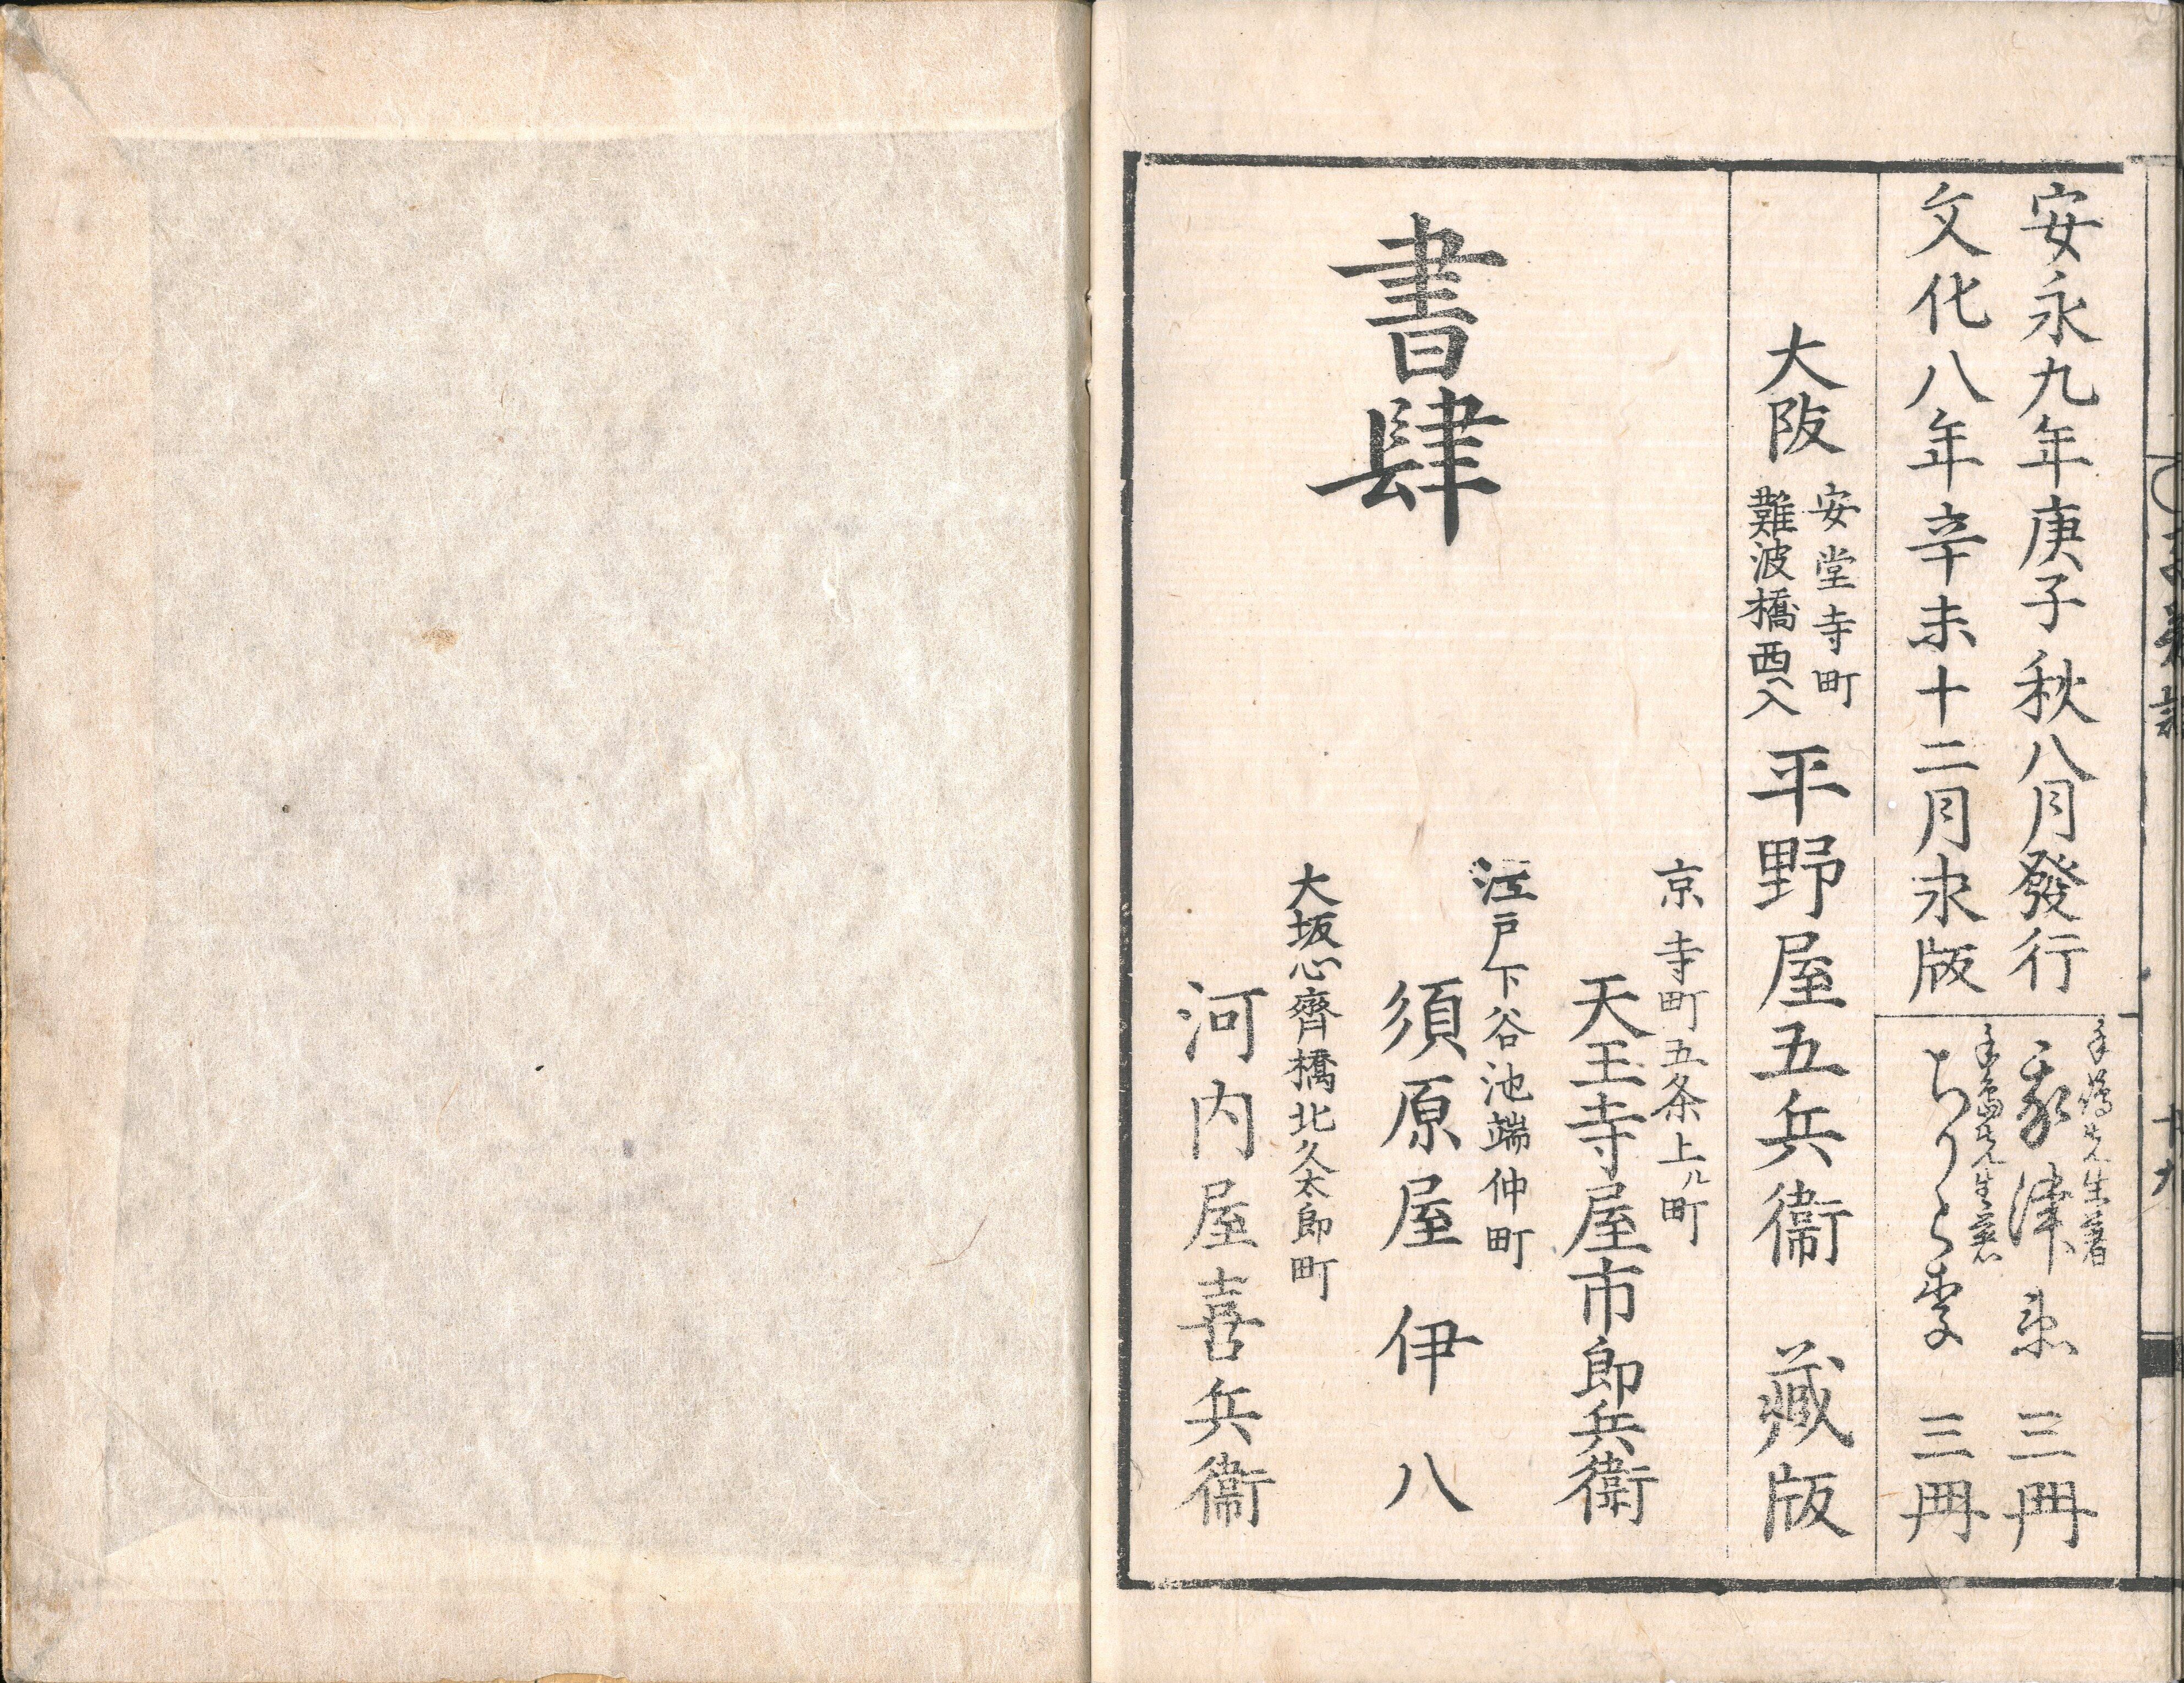 安永九年庚子秋八月發行
文化八年辛未十二月求版
手嶋先生著
我津衛 三冊
手嶌先生著
ちりら李 三冊
大阪
安堂寺町
難波橋西入
平野屋五兵衞 藏版
書肆
京寺町五条上ル町
天王寺屋市郎兵衞
江戸下谷池端仲町
須原屋伊八
大坂心齊橋北久太郎町
河内屋喜兵衞
十九